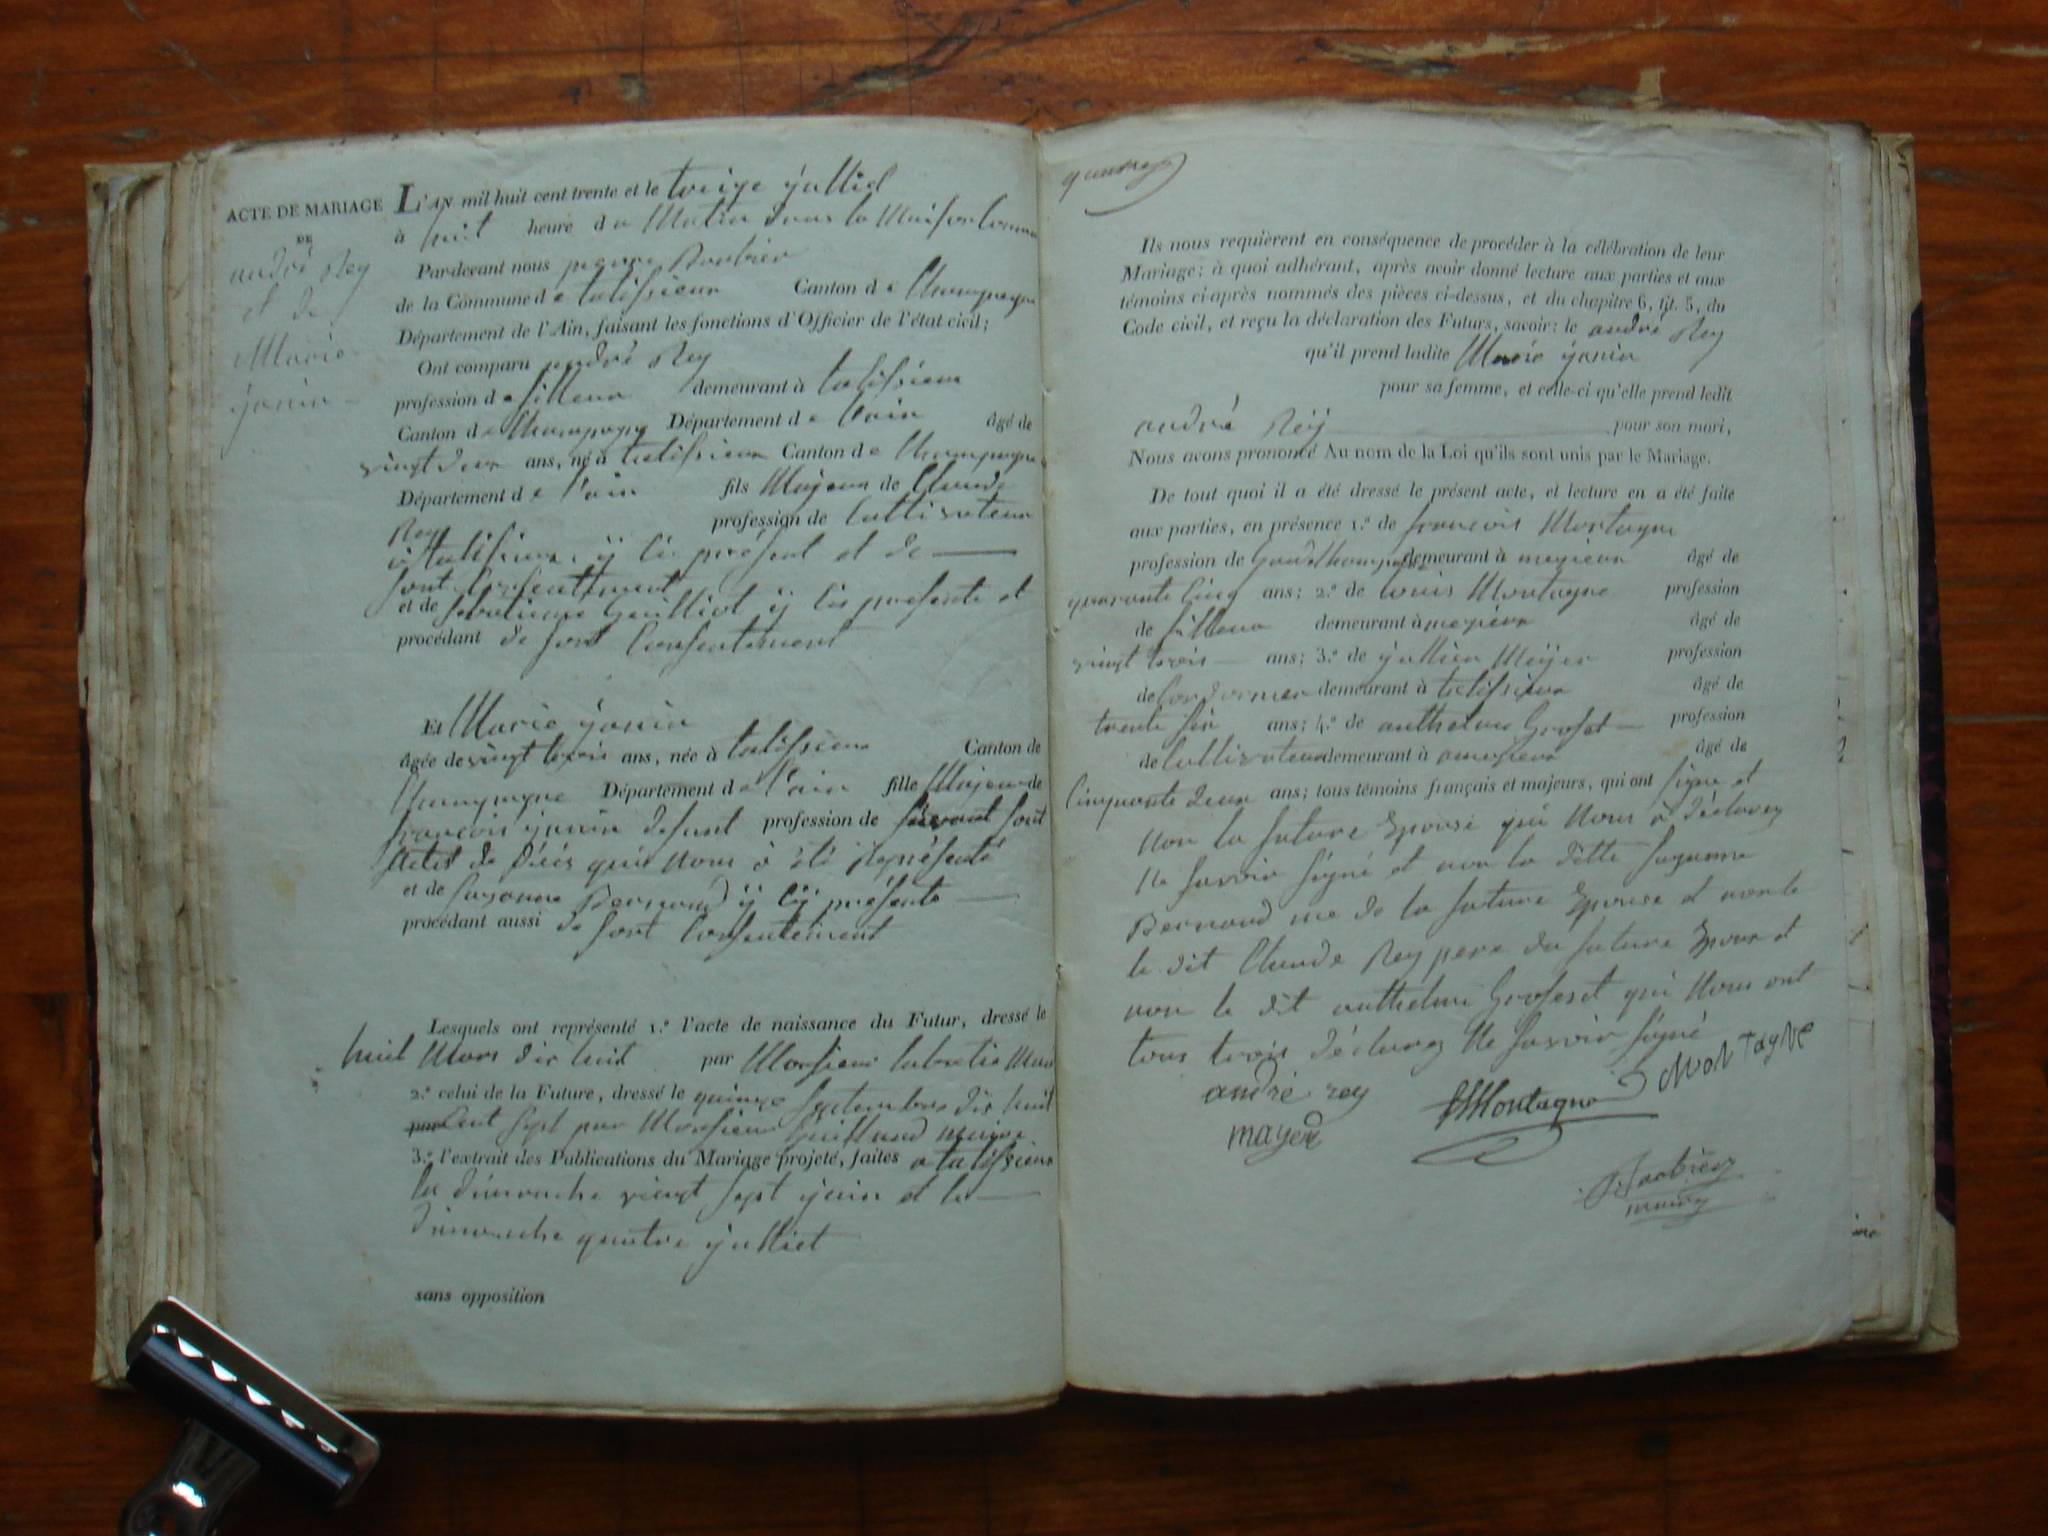 ACTE DE MARIAGE
DE
andré Rey
et de
Marie
janin
L'AN mil huit cent trente et le treize julliet
à huit heure du Matin dans la Maison Commu
Pardevant nous pierre Barbier
de la Commune de talissieux Canton de Champagne
Département de l'Ain, faisant les fonctions d'Officier de l'état civil;
Ont comparu andré Rey
profession de tilleur demeurant à talissieux
Canton de Champagne Département de l'ain âgé de
vingt deux ans, né à talissieux Canton de Champagne
Département de l'ain fils Majeur de Claude
Rey profession de Cultivateur
à talissieux, ÿ Cis présent et de
sont Consentement
et de Guilliot ÿ Cis presente et
procédant de sont Consentement
Et Marie janin
âgée de vingt trois ans, née à talissieux Canton de
Champagne Département de l'ain fille Majeur de
françois janin defunt profession de suivant sont
Actes de Déces qui nous à été Représenté
et de Suzanne Bernard ÿ Cÿ présente
procédant aussi de sont Consentement
Lesquels ont représenté 1.º l'acte de naissance du Futur, dressé le
huit Mars dix huit par Monsieur
2.º celui de la Future, dressé le quinze Septembre dix huit
par Cent sept par Monsieur maire
3.º l'extrait des Publications du Mariage projeté, faites a talissieux
les dimanche vingt sept juin et le
dimanche quatre julliet
sans opposition
Ils nous requièrent en conséquence de procéder à la célébration de leur
Mariage; à quoi adhérant, après avoir donné lecture aux parties et aux
témoins ci-après nommés des pièces ci-dessus, et du chapitre 6, tit. 5, du
Code civil, et reçu la déclaration des Futurs, savoir: le andré Rey
qu'il prend ladite Marie janin
pour sa femme, et celle-ci qu'elle prend ledit
andré Reÿ pour son mari,
Nous avons prononcé Au nom de la Loi qu'ils sont unis par le Mariage.
De tout quoi il a été dressé le présent acte, et lecture en a été faite
aux parties, en présence 1.º de françois Montagne
profession de demeurant à âgé de
quarante Cinq ans; 2.º de Louis Montagne profession
de tilleur demeurant à âgé de
vingt trois ans; 3.º de jullien Meÿer profession
de Cordonnier demeurant à talissieux âgé de
trente six ans; 4.º de anthelme Grosset profession
de Cultivateur demeurant à âgé de
Cinquante deux ans; tous témoins français et majeurs, qui ont signé et
Non la future Epouse qui Nous à déclarez
Ne savoir signé et non la ditte Suzanne
Bernard me de la future Epouse et non le
le dit Claude Rey pere du future Epoux et
non le dit anthelme Grosset qui Nous ont
tous trois déclarez Ne savoir signé
andré rey Montagne Montagne
mayer
Barbier
maire